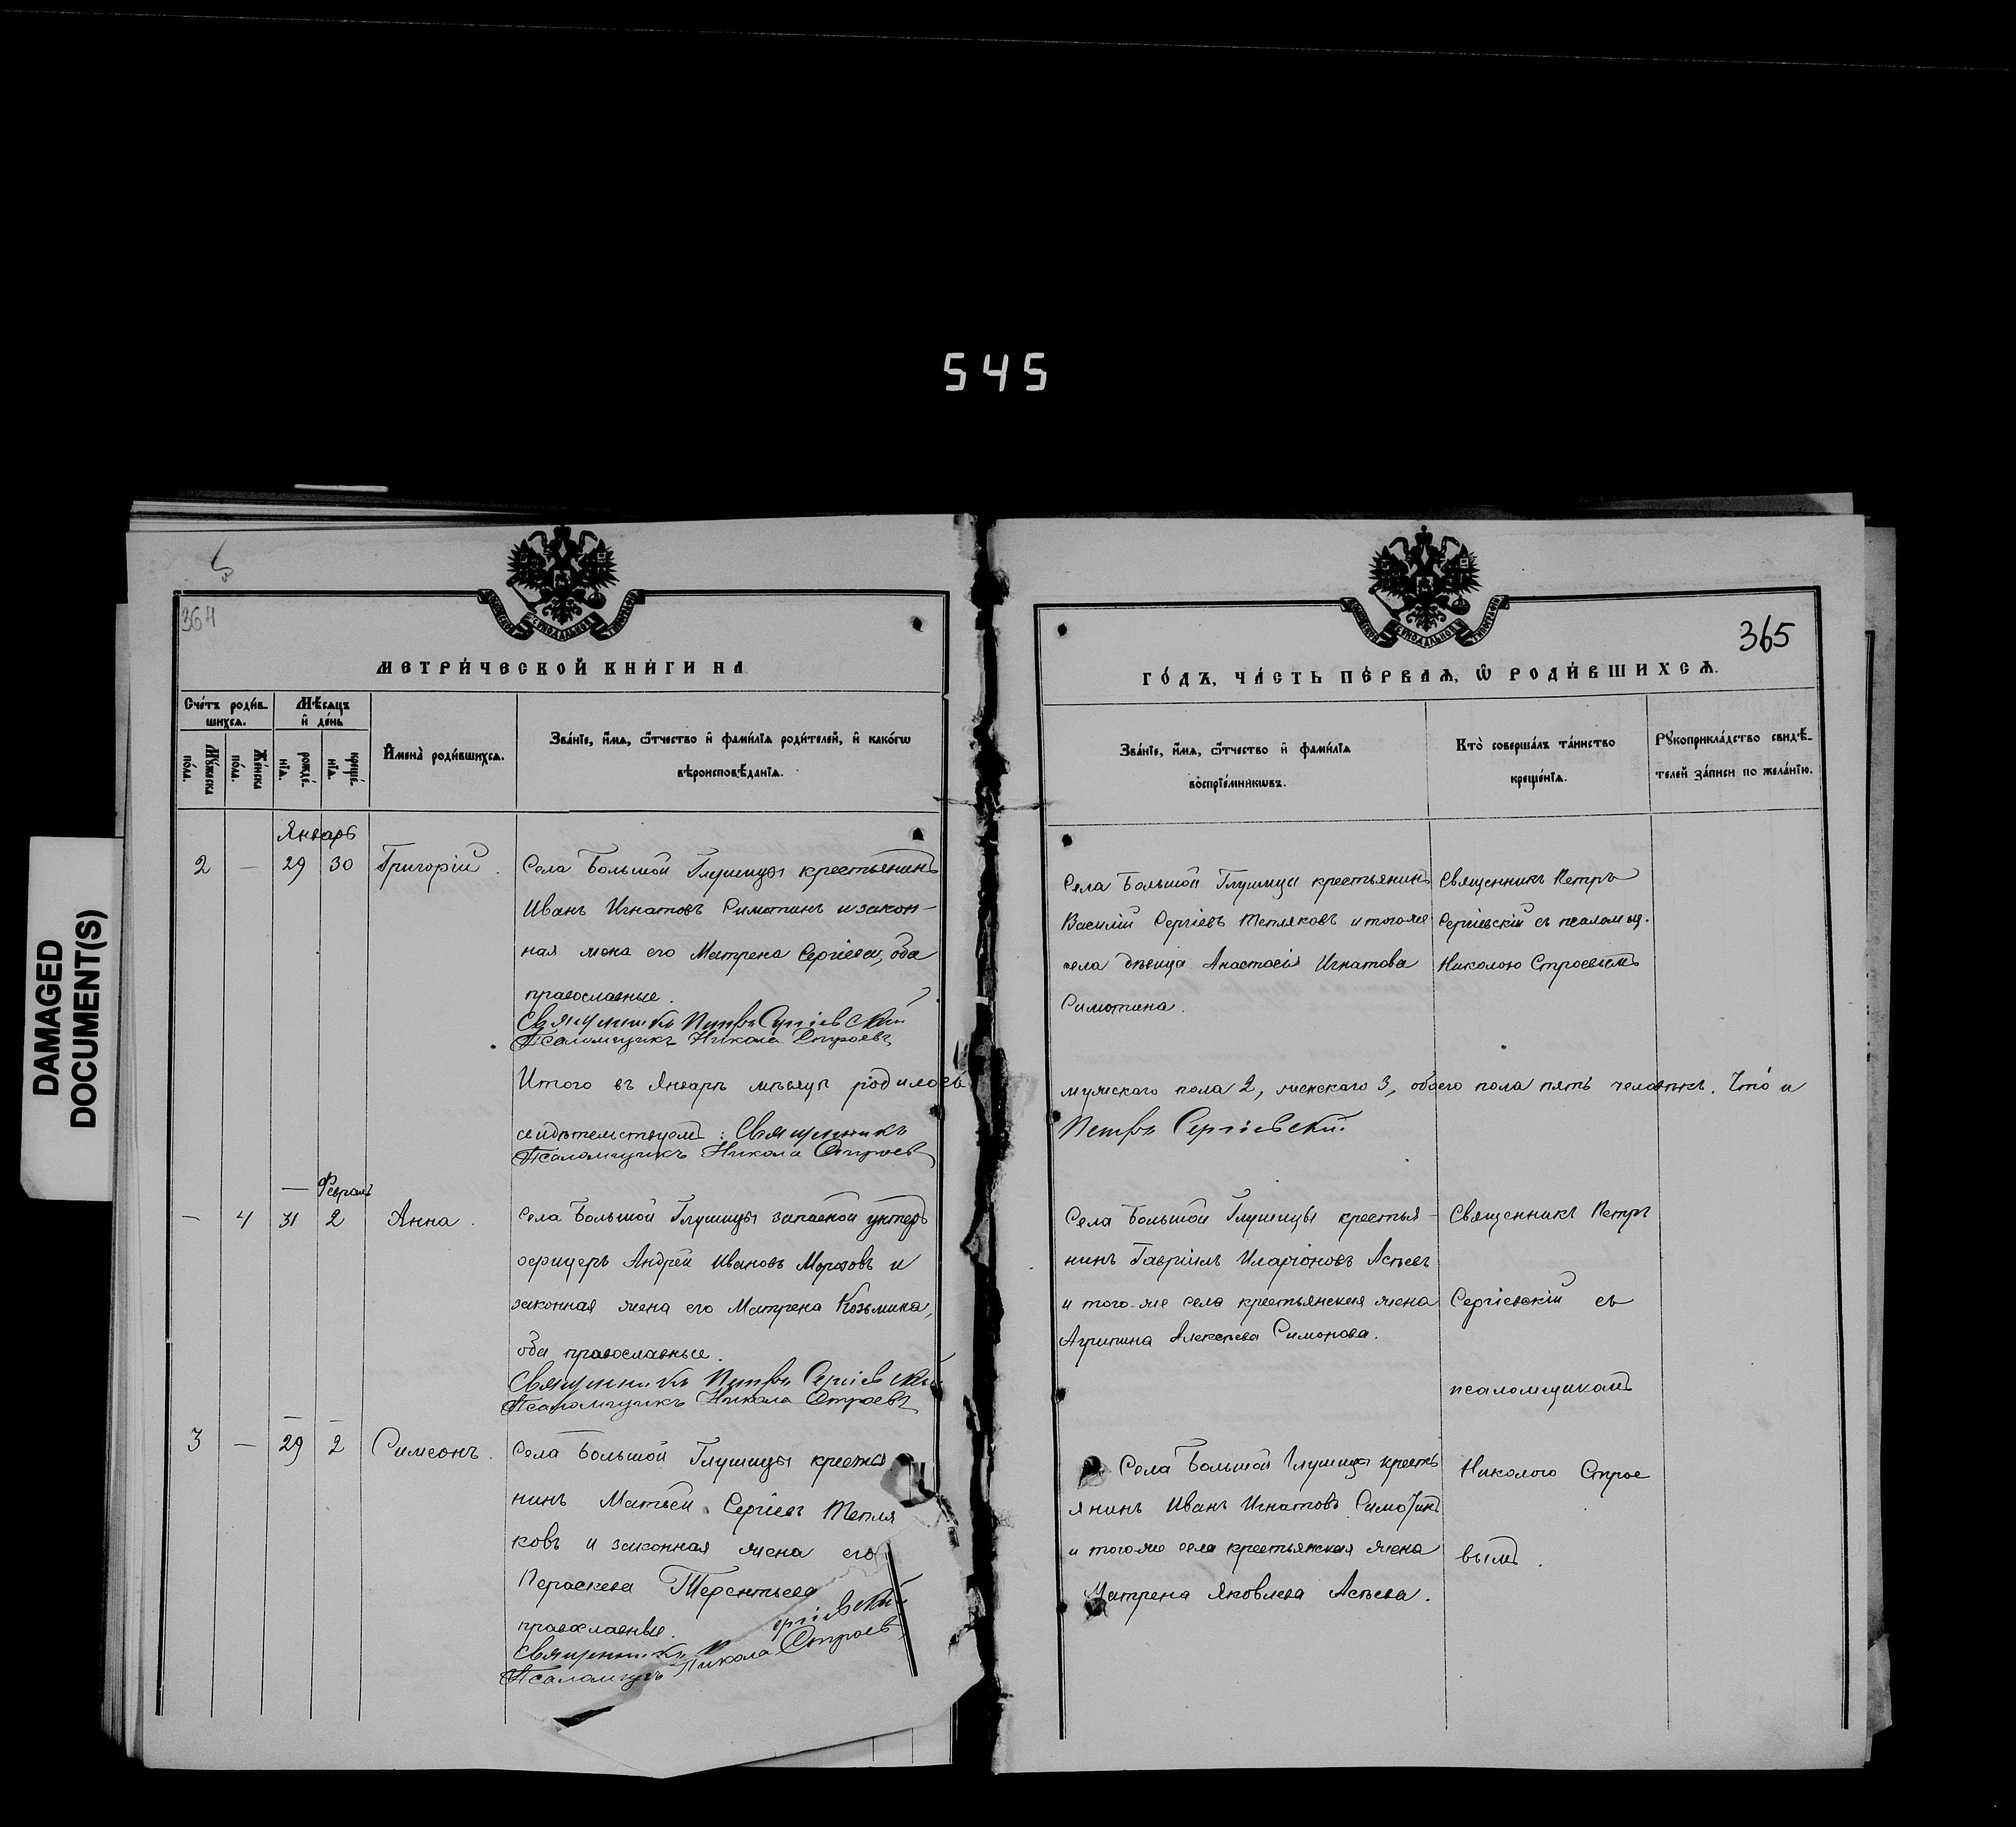 545
DAMAGED
DOCUMENT(S)
364
МЕТРИ́ЧЕСКОЙ КНИ́ГИ НА
Сче́тъ роди́в-
шихсѧ.
Мѣ́сѧцъ
и҆ де́нь
Мꙋ́жеска
по́ла.
Же́нска
по́ла.
рожде́-
нїѧ.
креще́-
нїѧ.
И҆мена̀ роди́вшихсѧ.
Зва́нїе, и҆́мѧ, ѻ҆́тчество и҆ фами́лїѧ роди́телей, и҆ како́гѡ
вѣроисповѣ́данїѧ.
Январь
2 — 29 30 Григорій.
Села Большой Глушицы крестьянинъ
Иванъ Игнатовъ Симотинъ и закон-
ная жена его Матрена Сергіева, оба
православные.
Священникъ Петръ Сергіевскій
Псаломщикъ Никола Строевъ
Итого въ Январѣ мѣсяцѣ родилось
свидѣтельствуемъ: Священникъ
Псаломщикъ Никола Строевъ
— Февраль
— 4 31 2 Анна.
Села Большой Глушицы запасной унтеръ
офицеръ Андрей Ивановъ Морозовъ и
законная жена его Матрена Козьмина,
оба православные.
Священникъ Петръ Сергіевскій
Псаломщикъ Никола Строевъ
3 — 29 2 Симеонъ.
Села Большой Глушицы крестья
нинъ Матвѣй Сергіевъ Тепля
ковъ и законная жена его
Параскева Терентьева
православные.
Священникъ П ергіевскій
Псаломщикъ Никола Строевъ
365
ГО́ДЪ, ЧА́СТЬ ПЕ́РВАѦ, Ѡ҆ РОДИ́ВШИХСѦ.
Зва́нїе, и҆́мѧ, ѻ҆́тчество и҆ фами́лїѧ
воспрїе́мникѡвъ.
Кто̀ соверша́лъ та́инство
креще́нїѧ.
Рꙋкоприкла́дство свидѣ́-
телей за́писи по жела́нїю.
Села Большой Глушицы крестьянинъ
Василій Сергіевъ Тепляковъ и того же
села дѣвица Анастасія Игнатова
Симотина.
Священникъ Петръ
Сергіевскій съ псаломщ.
Николою Строевымъ
мужскаго пола 2, женскаго 3, обоего пола пять человѣкъ. Что и
Петръ Сергіевскій.
Села Большой Глушицы крестья-
нинъ Гавріилъ Иларіоновъ Асѣевъ
и того-же села крестьянская жена
Агрипина Алексѣева Симонова.
Священникъ Петръ
Сергіевскій съ
псаломщикомъ
Села Большой Глушицы кресть
янинъ Иванъ Игнатовъ Симотинъ
и того же села крестьянская жена
Матрена Яковлева Асѣева.
Николою Строе
вымъ.